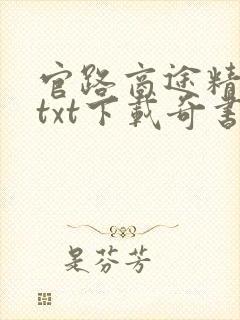 官路商途精
txt下载奇书
是芬芳